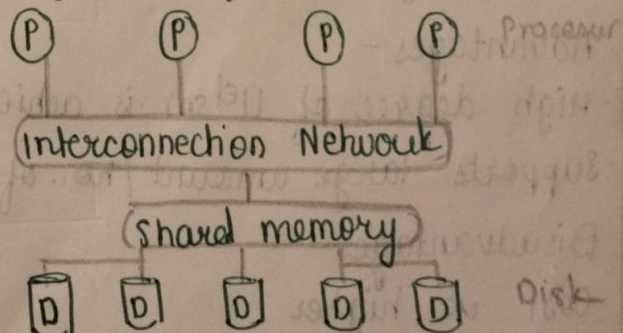 P P P P Processor
Interconnection Network
Shared memory
D D D D D Disk